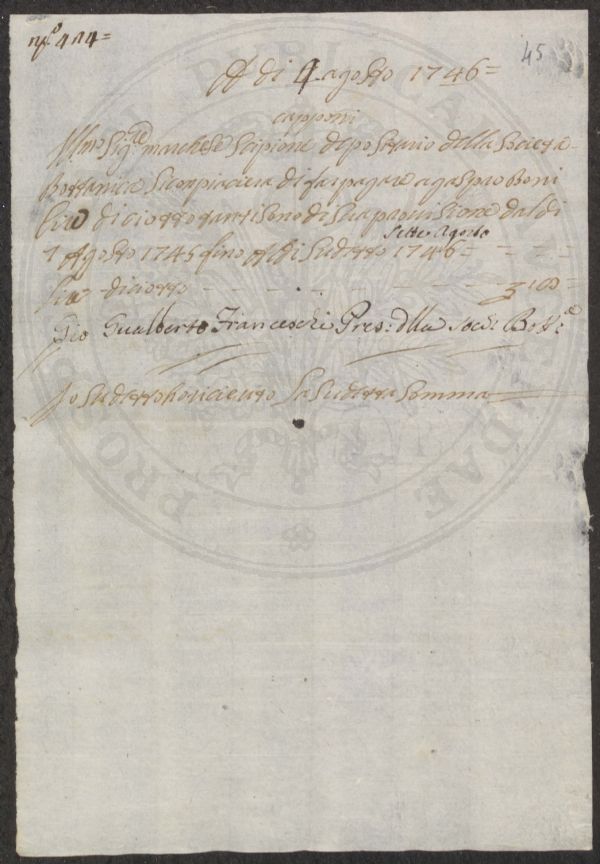 45
A di 4 agosto 1746=
capponi
Ill.mo Sig.re marchese Scipione depositario della Società
Bottanica Si conpiacera di far pagare a gaspro Boni
lire diciotto tanti sono di Sua provisione dal di
1 Agosto 1745 fino A di Sudetto 1746
Sette Agosto
lire diciotto
Gio Gualberto Franceschi Pres: della Soc: Bott.
Io Sudetto ho riceuto la Sudetta Somma
PRO